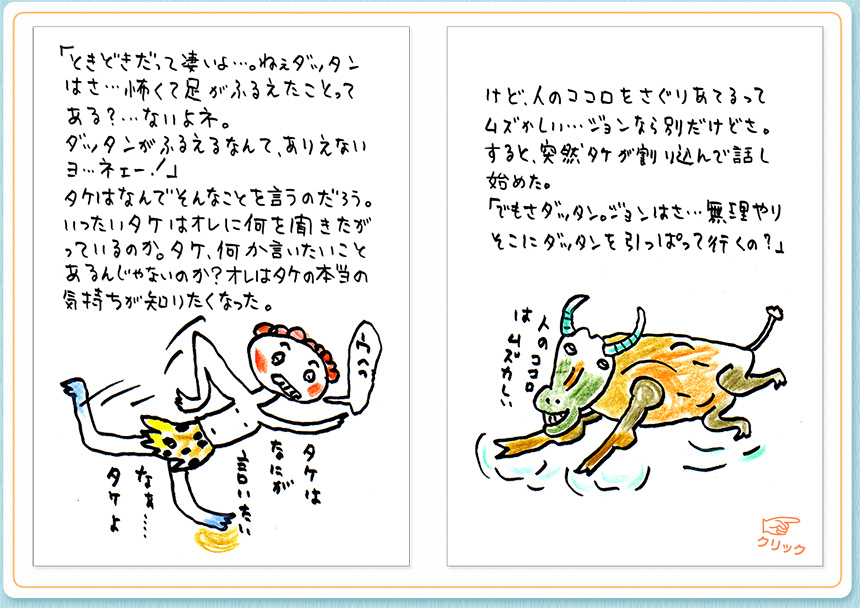 「ときどきだって凄いよ…。ねぇダッタン
はさ…怖くて足がふるえたことって
ある?…ないよネ。
ダッタンがふるえるなんて、ありえない
ヨ…ネェー!」
タケはなんでそんなことを言うのだろう。
いったいタケはオレに何を聞きたが
っているのか。タケ、何か言いたいこと
あるんじゃないのか?オレはタケの本当の
気持ちが知りたくなった。
タケは
なにが
言いたい
なぁ…
タケよ
けど、人のココロをさぐりあてるって
ムズかしい…ジョンなら別だけどさ。
すると、突然タケが割り込んで話し
始めた。
「でもさダッタン。ジョンはさ…無理やり
そこにダッタンを引っぱって行くの?」
人のココロ
は ムズカしい
クリック